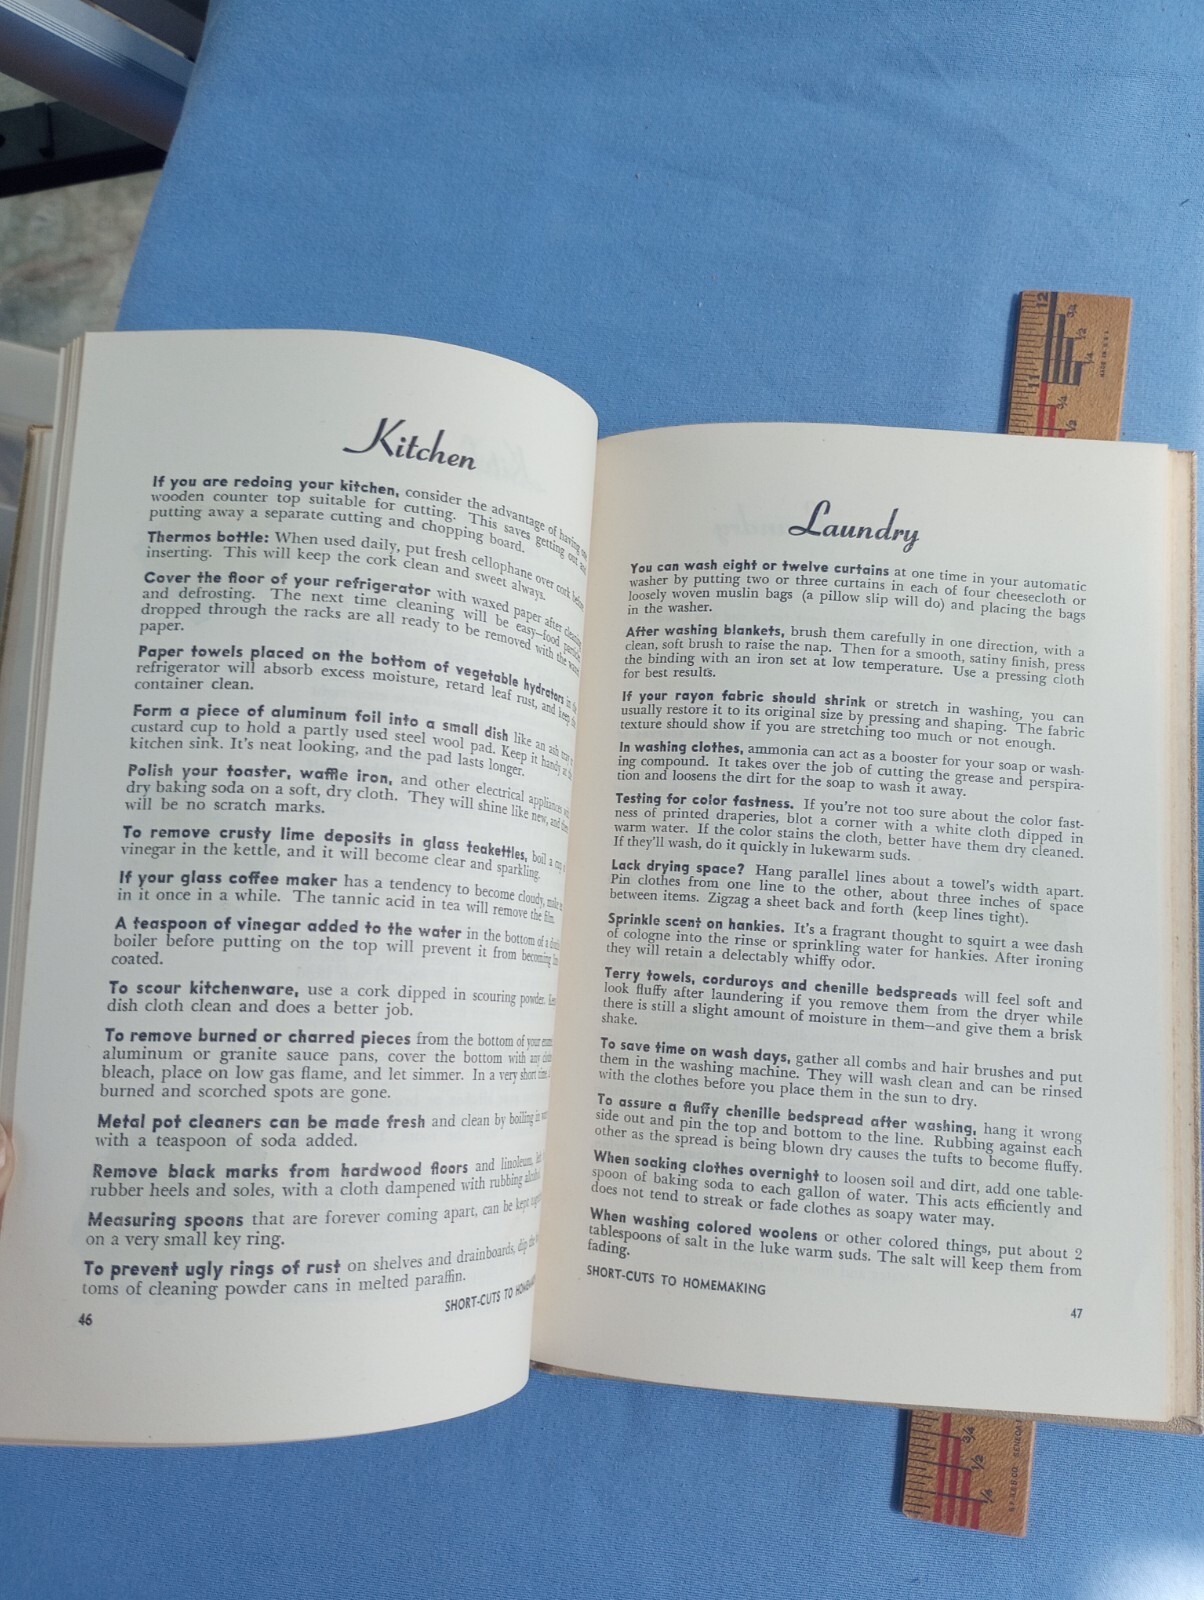 Kitchen
If you are redoing your kitchen, consider the advantage of having
wooden counter top suitable for cutting. This saves getting out and
putting away a separate cutting and chopping board.
Thermos bottle: When used daily, put fresh cellophane over cork before
inserting. This will keep the cork clean and sweet always.
Cover the floor of your refrigerator with waxed paper after cleaning
and defrosting. The next time cleaning will be easy—food particles
dropped through the racks are all ready to be removed with the waxed
paper.
Paper towels placed on the bottom of vegetable hydrators in the
refrigerator will absorb excess moisture, retard leaf rust, and keep the
container clean.
Form a piece of aluminum foil into a small dish like an ash tray or
custard cup to hold a partly used steel wool pad. Keep it handy at the
kitchen sink. It's neat looking, and the pad lasts longer.
Polish your toaster, waffle iron, and other electrical appliances with
dry baking soda on a soft, dry cloth. They will shine like new, and there
will be no scratch marks.
To remove crusty lime deposits in glass teakettles, boil a cup of
vinegar in the kettle, and it will become clear and sparkling.
If your glass coffee maker has a tendency to become cloudy, make
in it once in a while. The tannic acid in tea will remove the film.
A teaspoon of vinegar added to the water in the bottom of a
boiler before putting on the top will prevent it from becoming
coated.
To scour kitchenware, use a cork dipped in scouring powder.
dish cloth clean and does a better job.
To remove burned or charred pieces from the bottom of your
aluminum or granite sauce pans, cover the bottom with any
bleach, place on low gas flame, and let simmer. In a very short time
burned and scorched spots are gone.
Metal pot cleaners can be made fresh and clean by boiling in
with a teaspoon of soda added.
Remove black marks from hardwood floors and linoleum,
rubber heels and soles, with a cloth dampened with rubbing
Measuring spoons that are forever coming apart, can be kept
on a very small key ring.
To prevent ugly rings of rust on shelves and drainboards, dip the
toms of cleaning powder cans in melted paraffin.
SHORT-CUTS TO
46
Laundry
You can wash eight or twelve curtains at one time in your automatic
washer by putting two or three curtains in each of four cheesecloth or
loosely woven muslin bags (a pillow slip will do) and placing the bags
in the washer.
After washing blankets, brush them carefully in one direction, with a
clean, soft brush to raise the nap. Then for a smooth, satiny finish, press
the binding with an iron set at low temperature. Use a pressing cloth
for best results.
If your rayon fabric should shrink or stretch in washing, you can
usually restore it to its original size by pressing and shaping. The fabric
texture should show if you are stretching too much or not enough.
In washing clothes, ammonia can act as a booster for your soap or wash-
ing compound. It takes over the job of cutting the grease and perspira-
tion and loosens the dirt for the soap to wash it away.
Testing for color fastness. If you're not too sure about the color fast-
ness of printed draperies, blot a corner with a white cloth dipped in
warm water. If the color stains the cloth, better have them dry cleaned.
If they'll wash, do it quickly in lukewarm suds.
Lack drying space? Hang parallel lines about a towel's width apart.
Pin clothes from one line to the other, about three inches of space
between items. Zigzag a sheet back and forth (keep lines tight).
Sprinkle scent on hankies. It's a fragrant thought to squirt a wee dash
of cologne into the rinse or sprinkling water for hankies. After ironing
they will retain a delectably whiffy odor.
Terry towels, corduroys and chenille bedspreads will feel soft and
look fluffy after laundering if you remove them from the dryer while
there is still a slight amount of moisture in them—and give them a brisk
shake.
To save time on wash days, gather all combs and hair brushes and put
them in the washing machine. They will wash clean and can be rinsed
with the clothes before you place them in the sun to dry.
To assure a fluffy chenille bedspread after washing, hang it wrong
side out and pin the top and bottom to the line. Rubbing against each
other as the spread is being blown dry causes the tufts to become fluffy.
When soaking clothes overnight to loosen soil and dirt, add one table-
spoon of baking soda to each gallon of water. This acts efficiently and
does not tend to streak or fade clothes as soapy water may.
When washing colored woolens or other colored things, put about 2
tablespoons of salt in the luke warm suds. The salt will keep them from
fading.
SHORT-CUTS TO HOMEMAKING
47
12
3/4
1/2
1/4
11
3/4
1/2
MADE IN U.S.A.
3/4
1/2
1/4